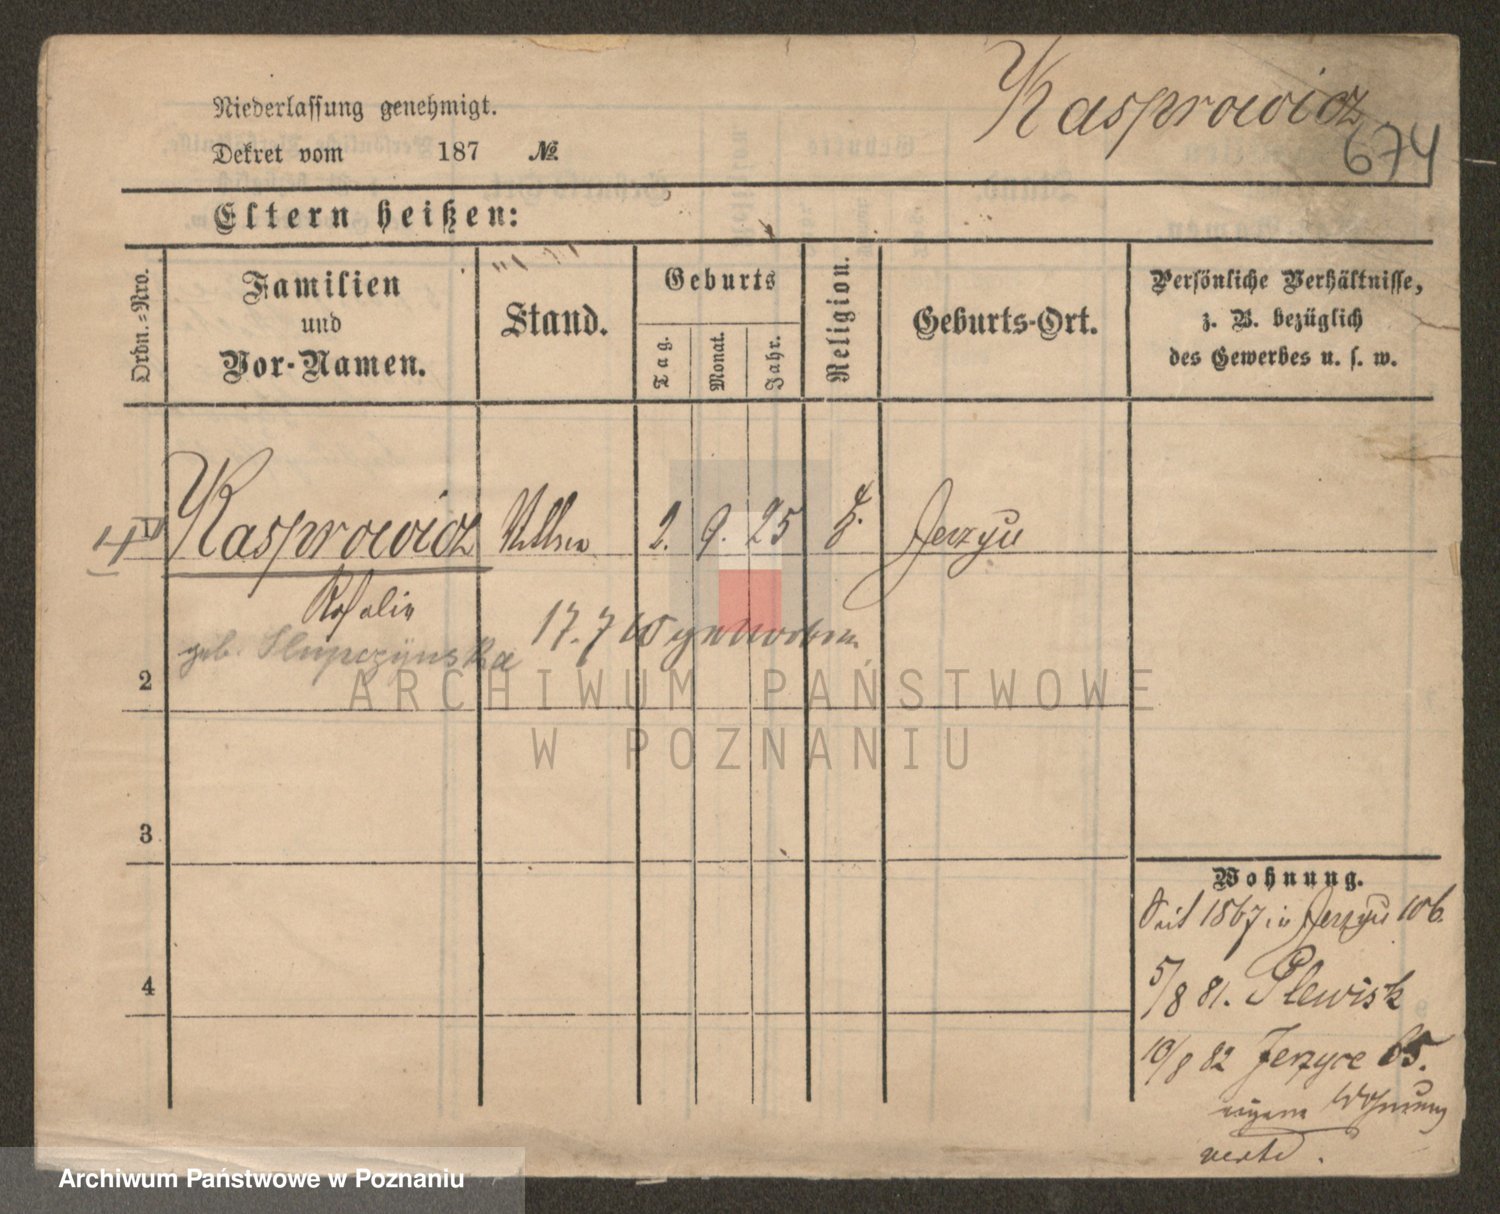 Kasprowicz
674
Niederlassung genehmigt.
Dekret vom 187 №
Eltern heißen:
Ordn.-Nro.
Familien
und
Vor-Namen.
Stand.
Geburts
Tag.
Monat.
Jahr.
Religion.
Geburts-Ort.
Persönliche Verhältnisse,
z. B. bezüglich
des Gewerbes u. s. w.
Kasprowicz 2. 9. 25 Jerzyce
Rosalie
geb. Slupczynska
17. 7
2
ARCHIWUM PAŃSTWOWE
W POZNANIU
3
4
Wohnung.
Seit 1867 in Jerzyce 106.
5/8 81. Plewisk
10/8 82 Jerzyce 65.
eigene Wohnung
verte.
Archiwum Państwowe w Poznaniu